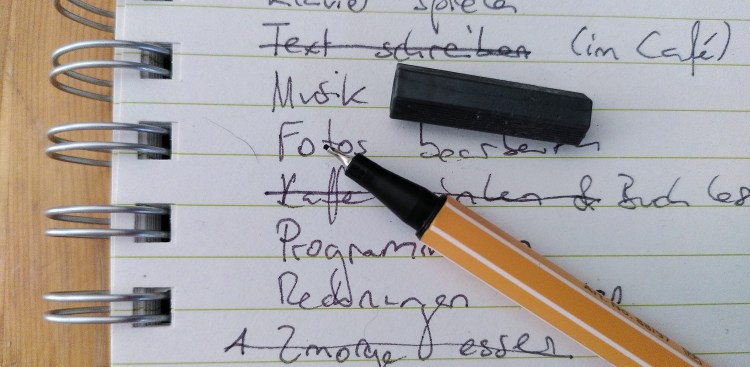 Klavier spielen
Text schreiben (im Café)
Musik
Fotos bearbeiten
Kaffe & Buch les
Programmi
Rechnungen
A Zmorge essen